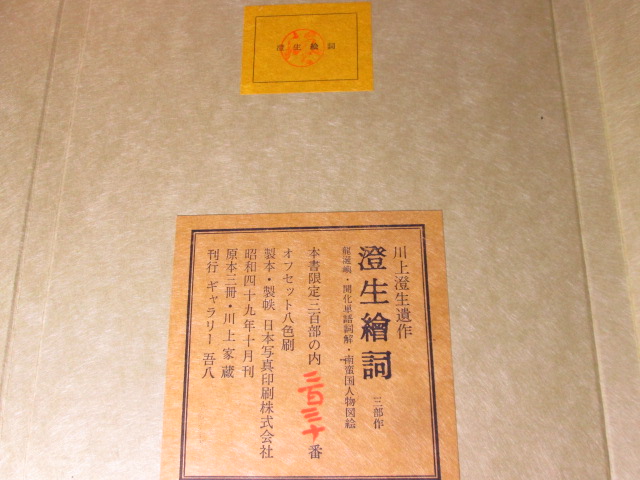 澄生絵詞
川上澄生遺作
澄生繪詞 三部作
龍涎嶼・開化単語詞解・南蛮国人物図絵
本書限定三百部の内 二百三十番
オフセット八色刷
製本・製帙 日本写真印刷株式会社
昭和四十九年十月刊
原本三冊・川上家蔵
刊行 ギャラリー 吾八